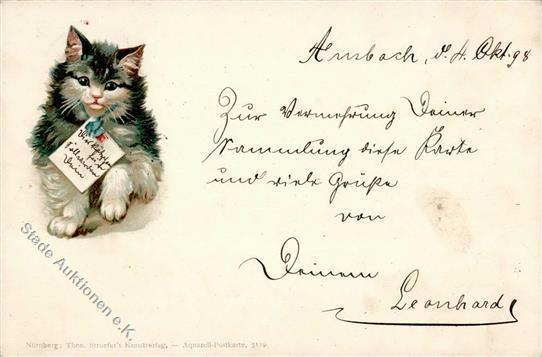 Ansbach, d. 4. Okt. 98
Zur Vermehrung Deiner
Sammlung diese Karte
und viele Grüße
von
Deinem
Leonhard
Stade Auktionen e.K.
Nürnberg: Theo. Stroefer's Kunstverlag. — Aquarell-Postkarte.